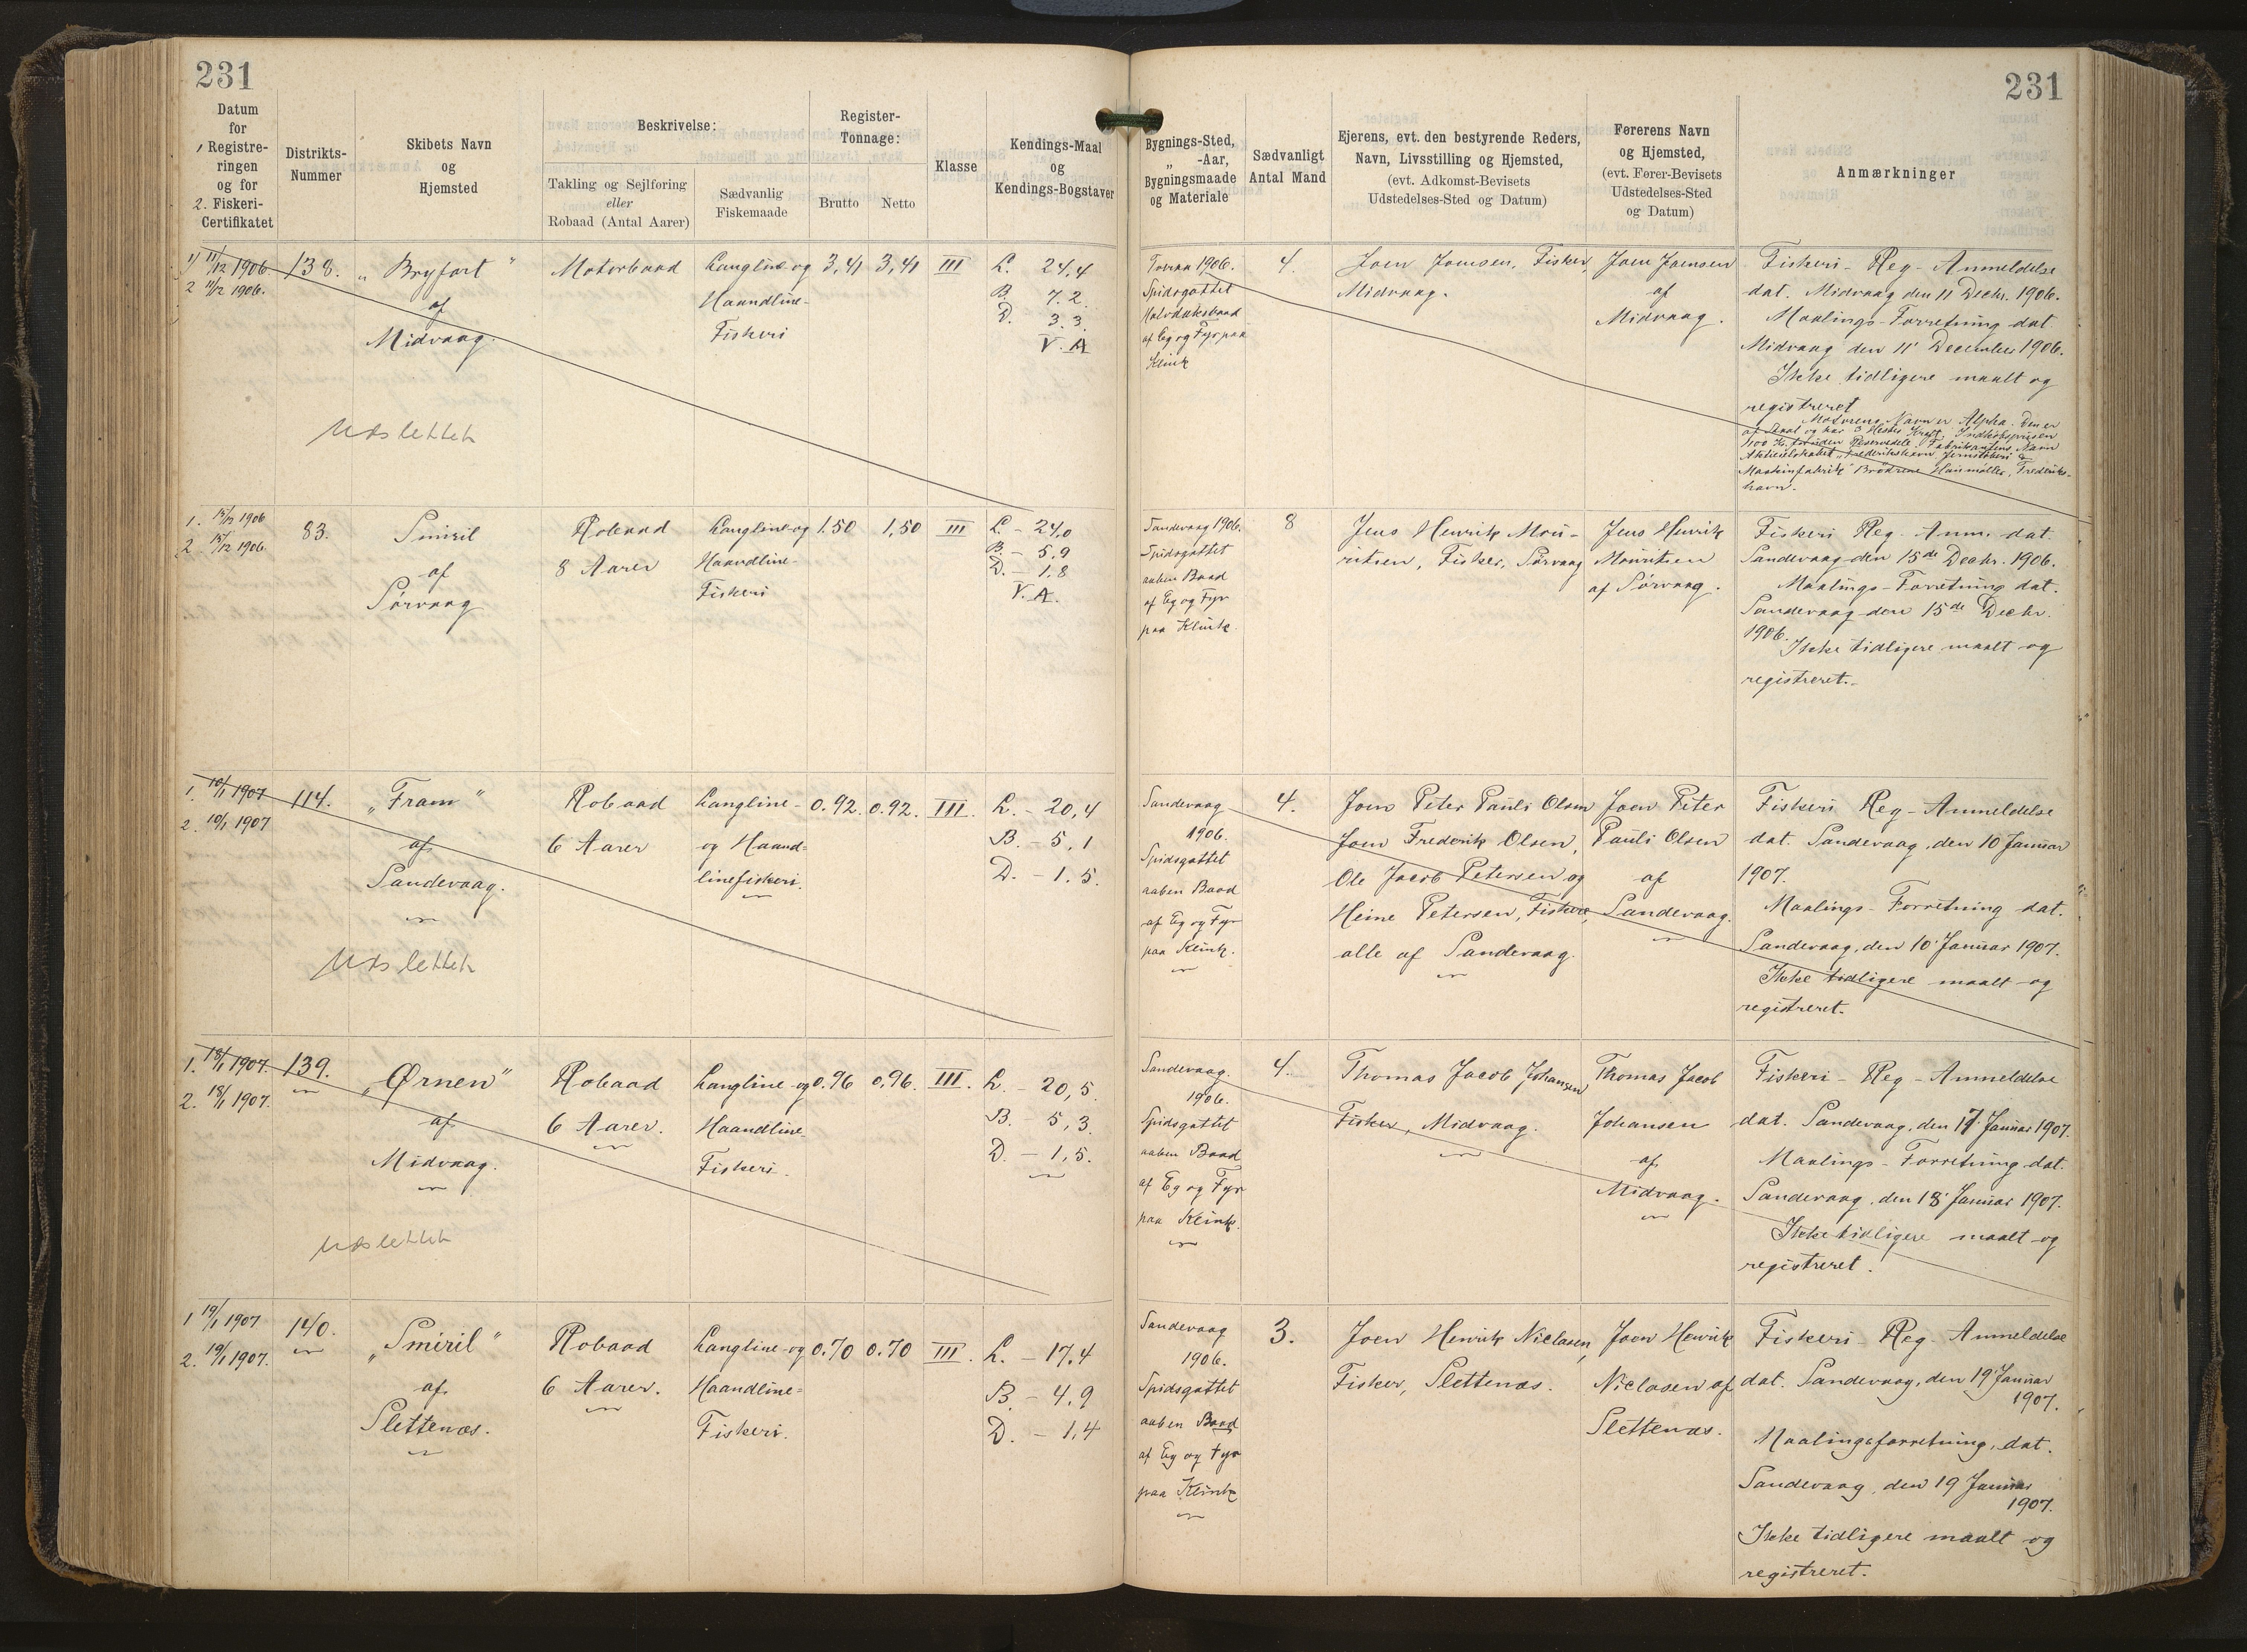 231
231
Datum
for
1 Registre-
ringen
og for
2. Fiskeri-
Certifikatet
Distrikts-
Nummer
Skibets Navn
og
Hjemsted
Beskrivelse:
Takling og Sejlføring
eller
Robaad (Antal Aarer)
Sædvanlig
Fiskemaade
Register-
Tonnage:
Brutto
Netto
Klasse
Kendings-Maal
og
Kendings-Bogstaver
Bygnings-Sted,
„ -Aar,
Bygningsmaade
og Materiale
Sædvanligt
Antal Mand
Ejerens, evt. den bestyrende Reders,
Navn, Livsstilling og Hjemsted,
(evt. Adkomst-Bevisets
Udstedelses-Sted og Datum)
Førerens Navn
og Hjemsted,
(evt. Fører-Bevisets
Udstedelses-Sted
og Datum)
Anmærkninger
1) 11/12 1906.
2 11/12 1906.
138.
„Bryfart"
af
Midvaag.
Udslettet
Motorbaad
Langline og
Haandline-
Fiskeri
3,41
3,41
III
L. 24,4
B. 7.2
D. 3.3
V. A
1906.
Spidsgattet
Halvdæksbaad
af Eg og Fyr paa
Klink
4.
Joen Joensen, Fisker,
Midvaag.
Joen Joensen
af
Midvaag.
Fiskeri-Reg-Anmeldelse
dat. Midvaag den 11 Decbr. 1906.
Maalings-Forretning dat
Midvaag den 11' December 1906.
Ikke tidligere maalt og
registreret
Motorens Navn er Alpha. Den er
af Staal og har 3 Hestes Kraft. Indkøbsprisen
1100 Kr. foruden Reservedele. Fabrikantens Navn
Aktieselskabet „Frederikshavn Jernstøberi &
Maskinfabrik" Brødrene Houmøller, Frederiks-
havn.
1. 15/12 1906
2 15/12 1906.
83.
Smiril
af
Sørvaag
Robaad
8 Aarer
Langline og
Haandline-
Fiskeri
1.50
1,50
III
L - 24,0
B. - 5,9
D. - 1,8
V. A.
Sandevaag 1906.
Spidsgattet
aaben Baad
af Eg og Fyr
paa Klink.
8
Jens Henrik Mou-
ritsen, Fisker, Sørvaag
Jens Henrik
Mouritsen
af Sørvaag.
Fiskeri Reg. Anm. dat.
Sandevaag den 15de Decbr. 1906.
Maalings-Forretning dat.
Sandevaag den 15de Decbr.
1906.
Ikke tidligere maalt og
registreret.-
1. 10/1 1907
2. 10/1 1907
114.
„Fram"
af
Sandevaag.
Udslettet
Robaad
6 Aarer
Langline-
og Haand-
linefiskeri.
0.92.
0.92.
III.
L. - 20,4
B. - 5,1
D. - 1.5.
Sandevaag
1906.
Spidsgattet
aaben Baad
af Eg og Fyr
paa Klink.
4.
Joen Peter Pauli Olsen
Joen Frederik Olsen,
Ole Jacob Petersen og
Heine Petersen, Fiskere,
alle af Sandevaag.
Joen Peter
Pauli Olsen
af
Sandevaag.
Fiskeri Reg-Anmeldelse
dat. Sandevaag, den 10 Januar
1907.
Maalings-Forretning dat.
Sandevaag, den 10' Januar 1907.
Ikke tidligere maalt og
registreret.
1. 18/1 1907.
2. 18/1 1907.
139.
„Ørnen"
af
Midvaag.
Udslettet
Robaad
6 Aarer.
Langline og
Haandline-
Fiskeri.
0.96
0,96.
III.
L. - 20,5.
B. 5,3.
D. - 1,5.
Sandevaag.
1906.
Spidsgattet
aaben Baad
af Eg og Fyr
paa Klink.
4.
Thomas Jacob Johansen
Fisker, Midvaag.
Thomas Jacob
Johansen
af
Midvaag.
Fiskeri-Reg-Anmeldelse
dat. Sandevaag, den 17 Januar 1907.
Maalings-Forretning dat.
Sandevaag, den 18' Januar 1907.
Ikke tidligere maalt og
registreret.
1 19/1 1907
2. 19/1 1907.
140.
„Smiril"
af
Slettenæs.
Robaad
6 Aarer.
Langline og
Haandline-
Fiskeri.
0.70
0.70
III.
L. - 17,4
B. - 4,9
D. - 1,4
Sandevaag
1906.
Spidsgattet
aaben Baad
af Eg og Fyr
paa Klink
3.
Joen Henrik Niclasen,
Fisker, Slettenæs.
Joen Henrik
Niclasen af
Slettenæs.
Fiskeri-Reg-Anmeldelse
dat. Sandevaag, den 19 Januar
1907.
Maalingsforretning, dat.
Sandevaag, den 19 Januar
1907.
Ikke tidligere maalt og
registreret.